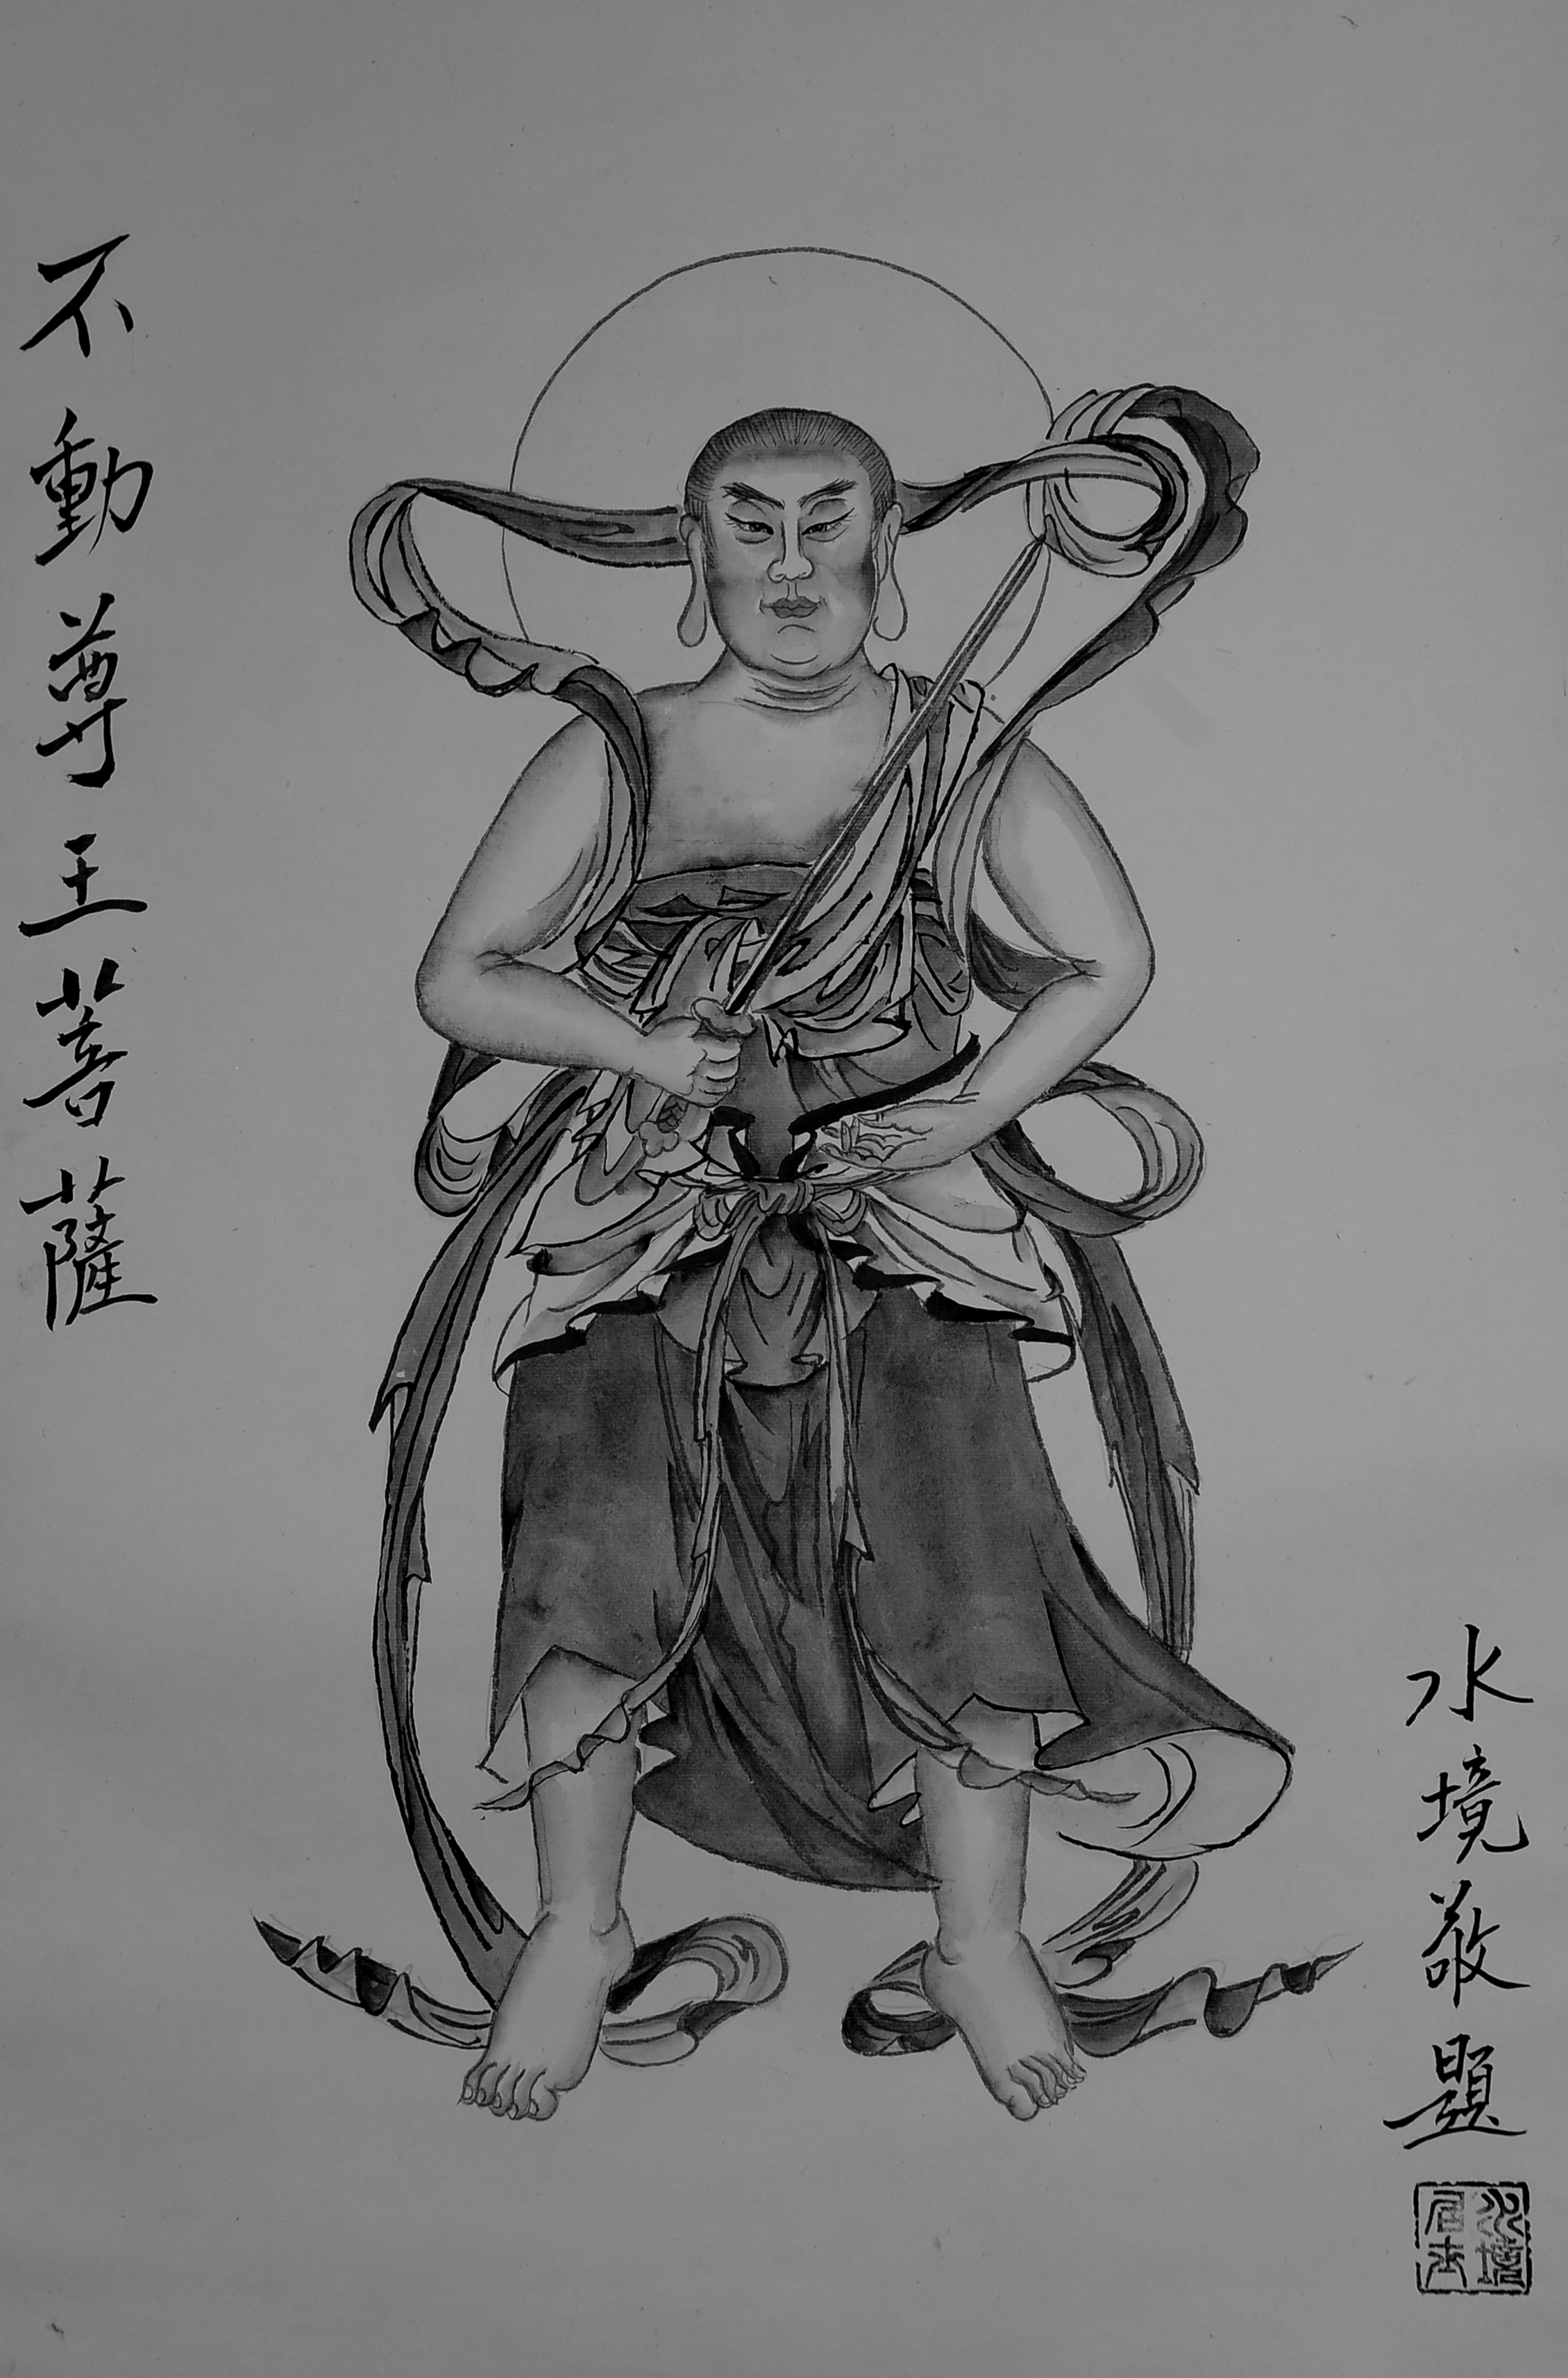 不動尊王菩薩
水境敬題
水境居士